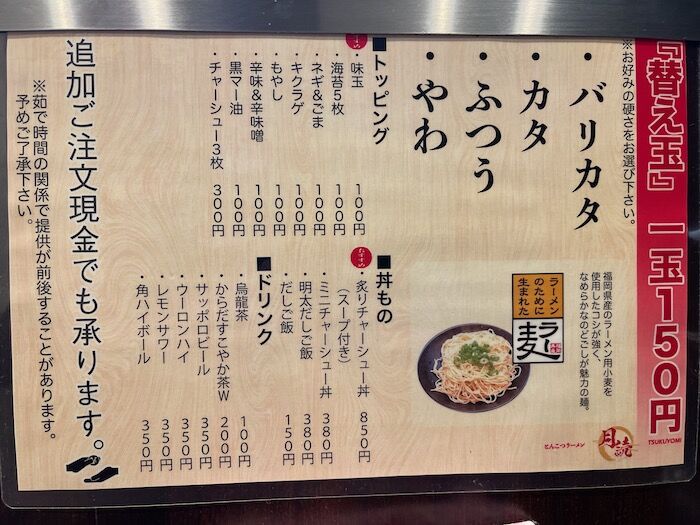 『替え玉』 一玉150円
TSUKUYOMI
※お好みの硬さをお選び下さい。
・バリカタ
・カタ
・ふつう
・やわ
福岡県産のラーメン用小麦を
使用したコシが強く、
なめらかなのどごしが魅力の麺。
ラーメン
のために
生まれた
ラー麦
とんこつラーメン
月読
■トッピング
・味玉 100円
・海苔5枚 100円
・ネギ&ごま 100円
・キクラゲ 100円
・もやし 100円
・辛味&辛味噌 100円
・黒マー油 100円
・チャーシュー3枚 300円
■丼もの
おすすめ
・炙りチャーシュー丼 850円
(スープ付き)
・ミニチャーシュー丼 380円
・明太だしご飯 380円
・だしご飯 150円
■ドリンク
・烏龍茶 100円
・からだすこやか茶W 200円
・サッポロビール 350円
・ウーロンハイ 350円
・レモンサワー 350円
・角ハイボール 350円
追加ご注文現金でも承ります。
※茹で時間の関係で提供が前後することがあります。
予めご了承下さい。